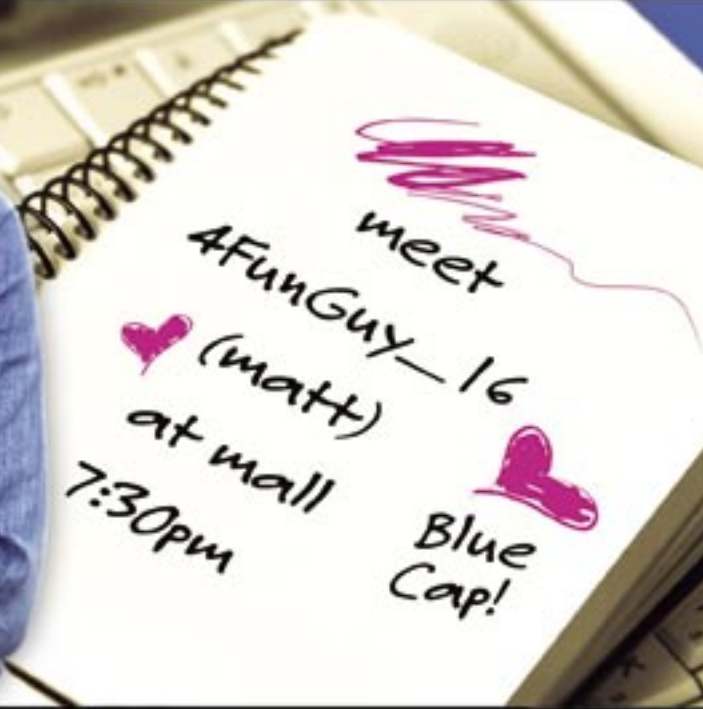 meet
4FunGuy_16
(matt)
at mall
7:30pm
Blue
Cap!